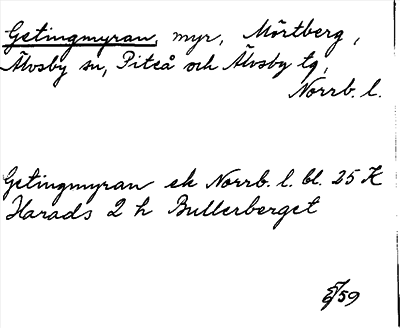 Getingmyran, myr, Mörtberg,
Älvsby sn, Piteå och Älvsby tg,
Norrb. l.
Getingmyran ek Norrb. l. bl. 25 K
Harads 2 h Bullerberget
/59